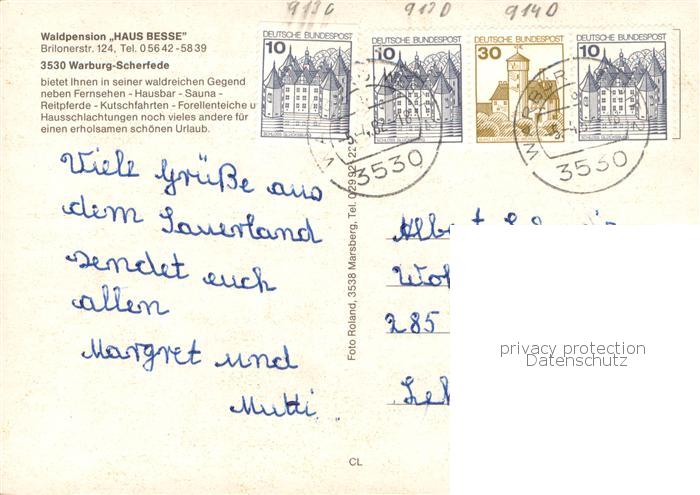 913 C 912 D 914 D
Waldpension „HAUS BESSE"
Brilonerstr. 124, Tel. 0 56 42 - 58 39
3530 Warburg-Scherfede
bietet Ihnen in seiner waldreichen Gegend
neben Fernsehen - Hausbar - Sauna -
Reitpferde - Kutschfahrten - Forellenteiche u
Hausschlachtungen noch vieles andere für
einen erholsamen schönen Urlaub.
DEUTSCHE BUNDESPOST
10
SCHLOSS GLÜCKSBURG
DEUTSCHE BUNDESPOST
10
SCHLOSS GLÜCKSBURG
DEUTSCHE BUNDESPOST
30
DEUTSCHE BUNDESPOST
10
SCHLOSS GLÜCKSBURG
3530
3530
Viele Grüße aus
dem Sauerland
sendet euch
allen
Margret und
Mutti
Foto Roland, 3538 Marsberg, Tel.
CL
285
privacy protection
Datenschutz